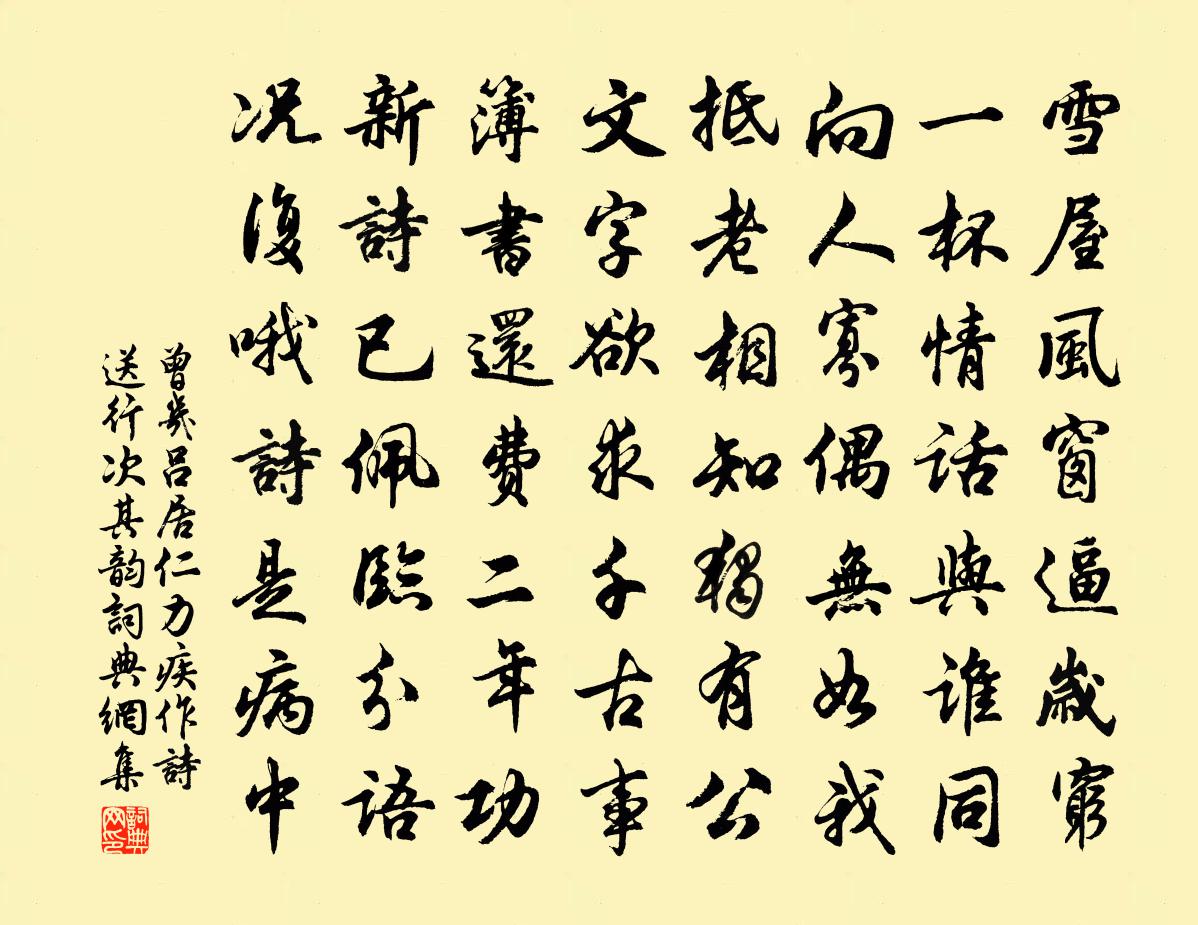 雪屋風窗逼歲窮
一杯情話與誰同
向人寡偶無如我
抵老相知獨有公
文字欲求千古事
簿書還費二年功
新詩已佩臨分語
况復哦詩是病中
曾幾呂居仁力疾作詩
送行次其韵詞典網集
詞典網印